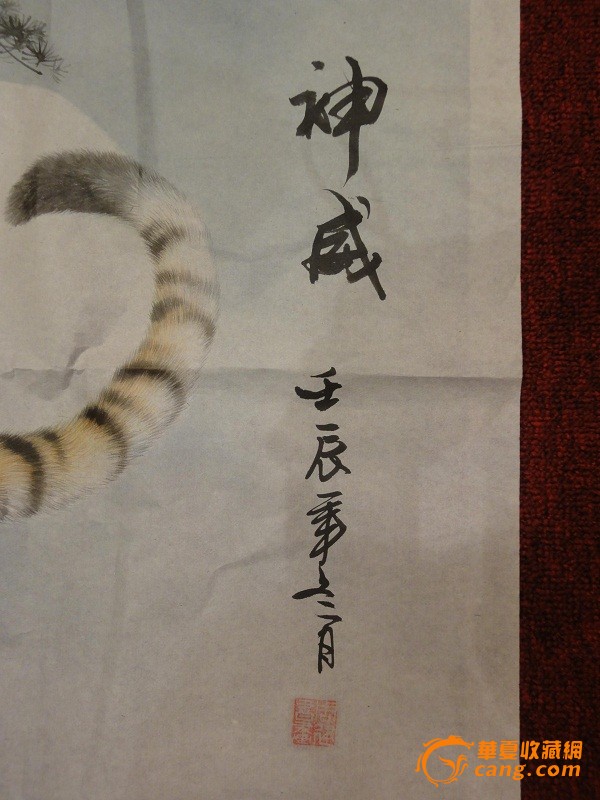 神威
壬辰年之二月
華夏收藏網
cang.com